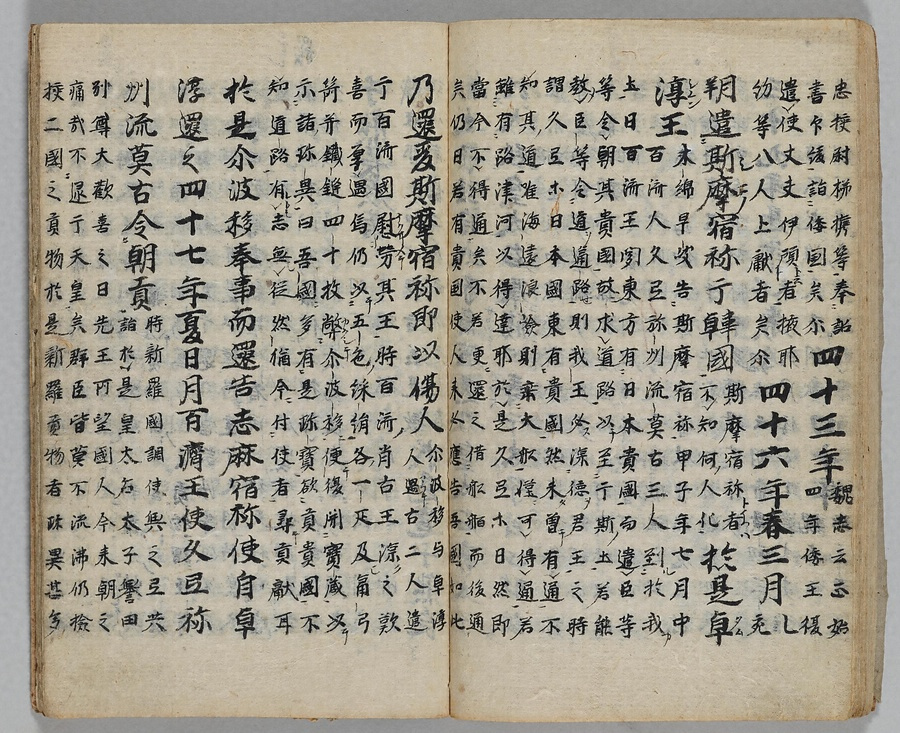 忠挍尉梯携等奉詔
書印綬詣倭国矣尒
四十三年
魏志云正始
四年倭王復
遣使大夫伊聲者掖耶
約等八人上獻者矣尒
四十六年春三月
乙
亥
朔遣斯摩宿祢于韓国
斯摩宿祢者
不知何人化
於是卓
淳王
末錦旱岐告斯摩宿祢甲子年七月中
百済人久氐弥州流莫古三人到於我
土曰百済王聞東方有日本貴國而遣臣等
等令朝其貴國故求道路以至于斯土若能
教臣等令通道路則我王必深徳君王之時
謂久氐等曰本聞東有貴國然未曽有通不
知其道唯海遠浪嶮則乗大舩僅可得通若
雖有路津河以得達耶於是久氐等曰然即
當今不得通矣不若更還之備舩舶而後通
矣仍曰若有貴國使人来必應告吾國如此
乃還爰斯摩宿祢即以傷人
尒波移与卓淳
人過古二人遣
于百済國慰労其王時百済肖古王深之歓
喜而厚遇焉仍以五色綵絹各一疋及角弓
箭并鐵鋌四十枚幣尒波移便復開寶蔵以
示諸珎異曰吾國多有是珎寶欲貢貴國不
知道路有志無従然猶今付使者尋貢獻耳
於是尒波移奉事而還告志麻宿祢使自卓
淳還之四十七年夏日月百濟王使久氐祢
州流莫古令朝貢
時新羅國調使與久氐共
詣於是皇太后太子譽田
別尊大歓喜之曰先王所望國人今来朝之
痛哉不逮于天皇矣群臣皆莫不流涕仍撿
挍二國之貢物於是新羅貢物者珎異甚多